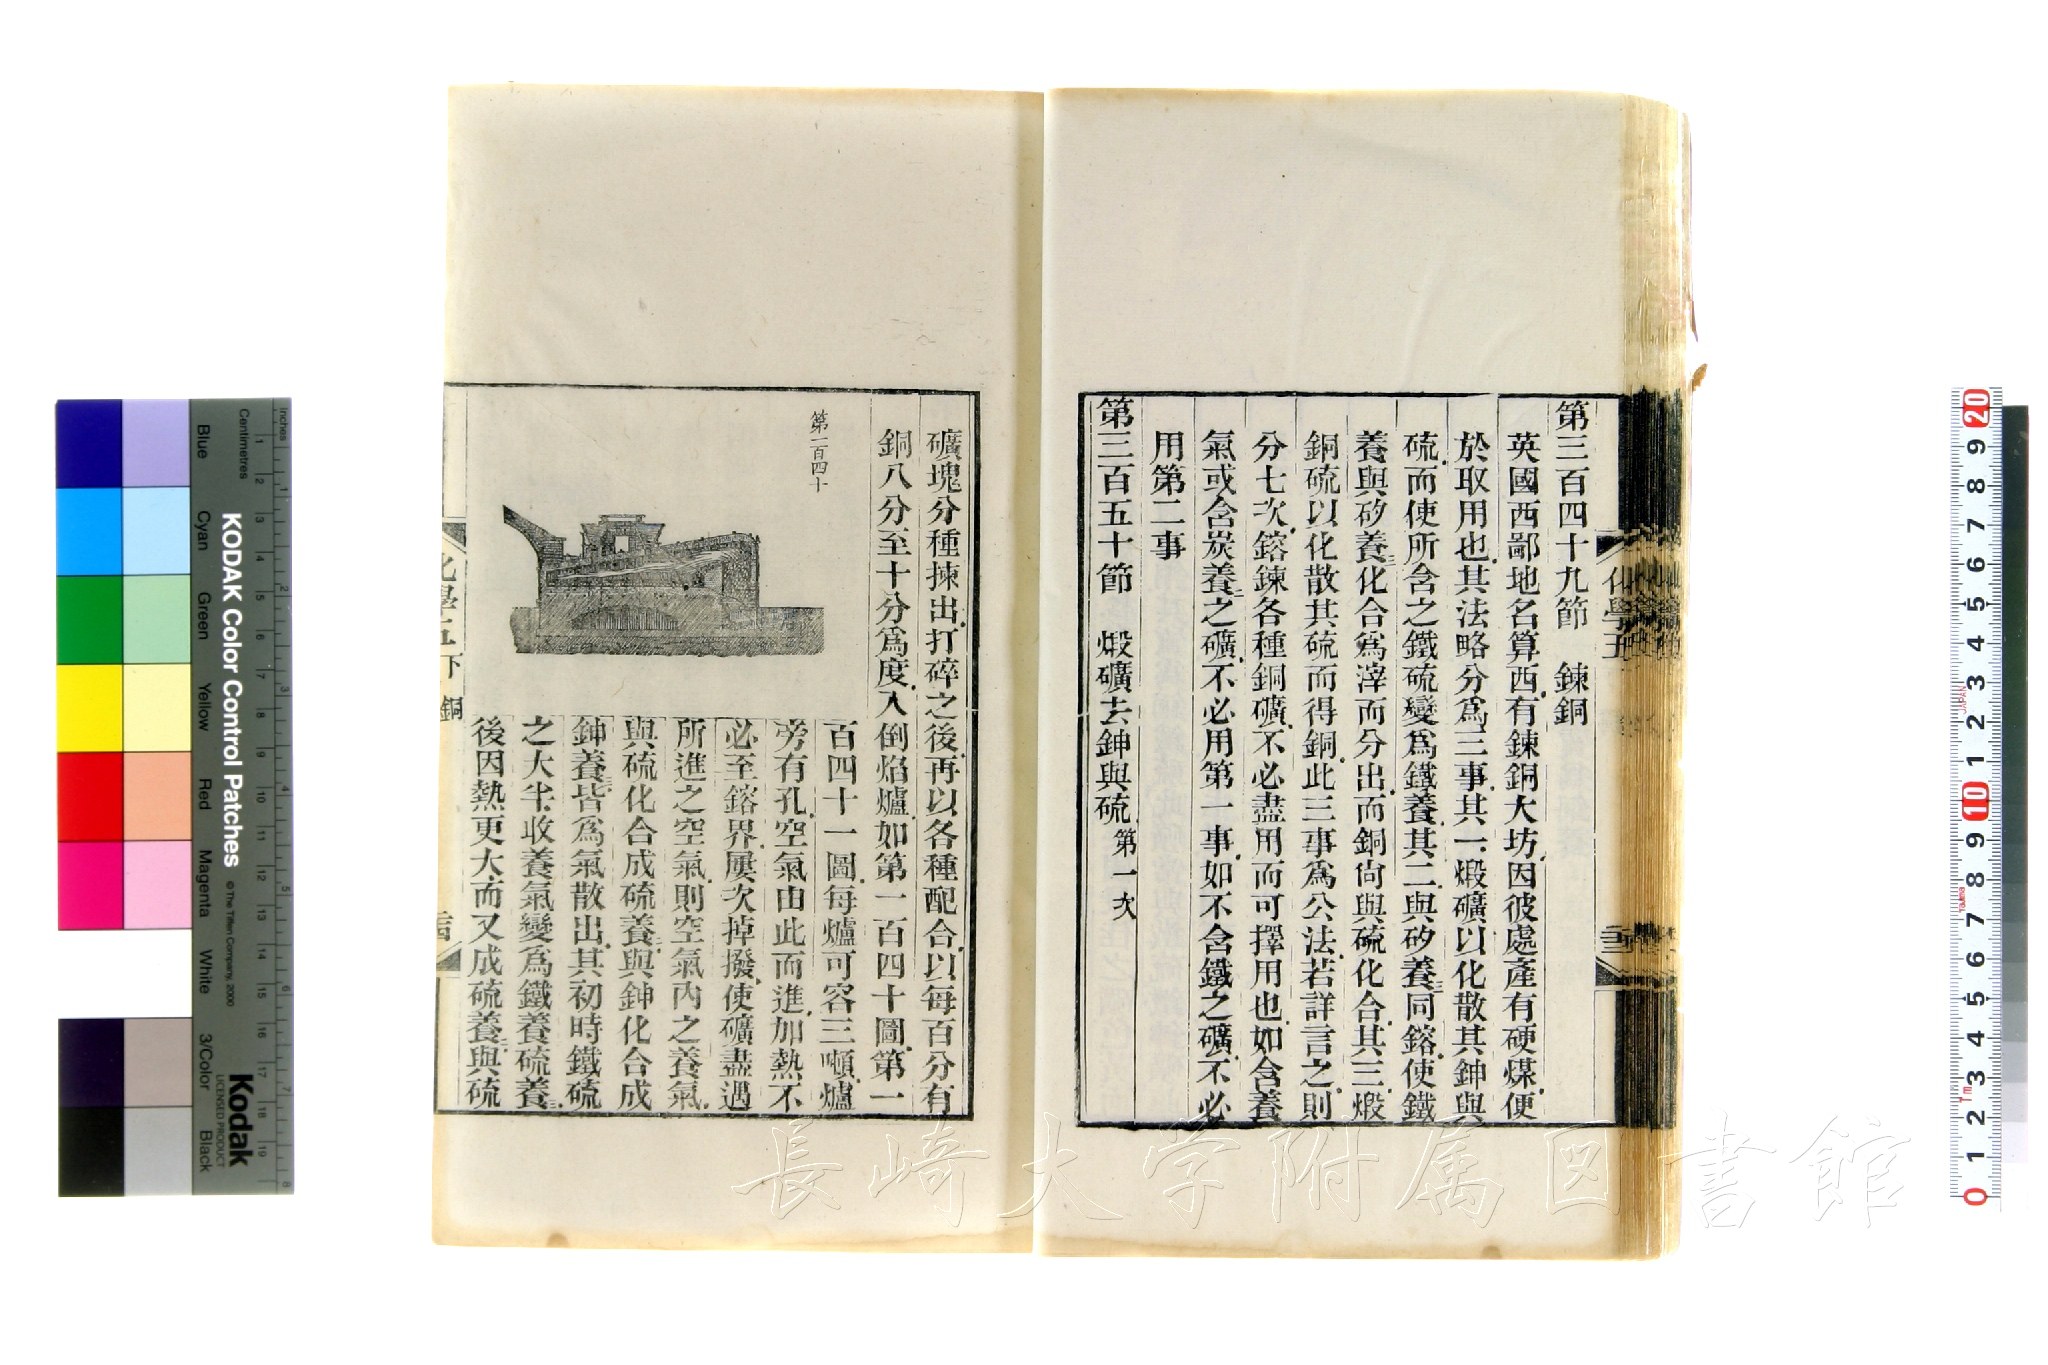 第三百四十九節　鍊銅
英國西鄙地名算西有鍊銅大坊因彼處產有硬煤便
於取用也其法略分爲三事其一煅礦以化散其鉮與
硫而使所含之鐵硫變爲鐵養其二與矽養三同鎔使鐵
養與矽養三化合爲滓而分出而銅尙與硫化合其三煅
銅硫以化散其硫而得銅此三事爲公法若詳言之則
分七次鎔鍊各種銅礦不必盡用而可擇用也如含養
氣或含炭養二之礦不必用第一事如不含鐵之礦不必
用第二事
第三百五十節　煅礦去鉮與硫第一次
化學五
礦塊分種揀出打碎之後再以各種配合以每百分有
銅八分至十分爲度入倒焰爐如第一百四十圖第一
第一百四十
百四十一圖每爐可容三噸爐
旁有孔空氣由此而進加熱不
必至鎔界屢次掉撥使礦盡遇
所進之空氣則空氣內之養氣
與硫化合成硫養二與鉮化合成
鉮養三皆爲氣散出其初時鐵硫
之大半收養氣變爲鐵養硫養三
後因熱更大而又成硫養二與硫
化學五下 銅
長崎大学附属図書館
KODAK Color Control Patches
© The Tiffen Company, 2000
Kodak
LICENSED PRODUCT
Blue
Cyan
Green
Yellow
Red
Magenta
White
3/Color
Black
Centimetres
Inches
JAPAN
Tajima